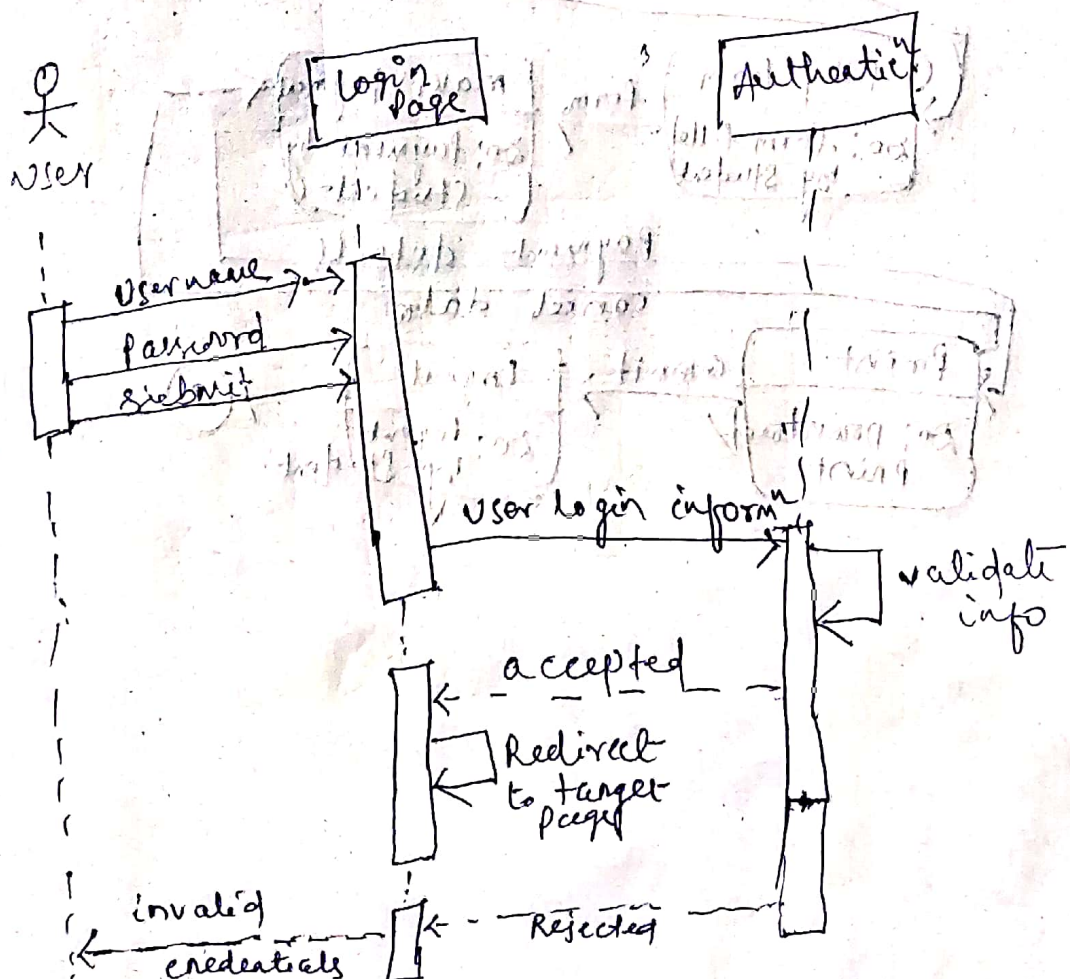 User
Login
Page
Authenticⁿ
Username
Password
Submit
User login informⁿ
validate
info
accepted
Redirect
to target
page
Rejected
invalid
credentials